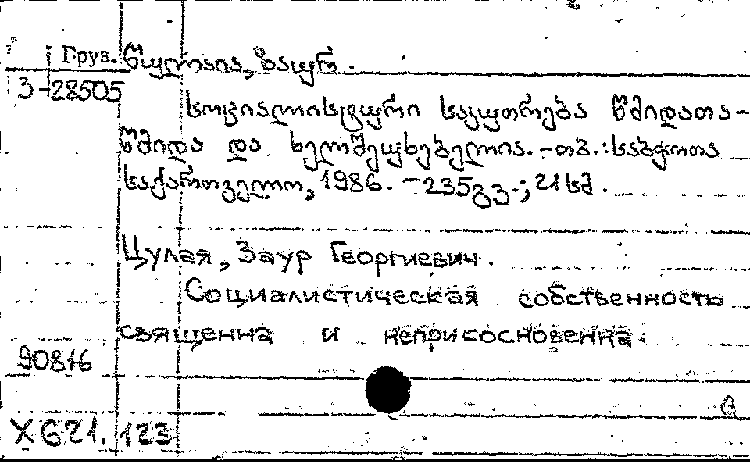 Груз. წულაია, ზაურ.
3-28505
სოციალისტური საკუთრება წმიდათა-
წმიდა და ხელშეუხებელია. -თბ.: საბჭოთა
საქართველო, 1986. -235გვ.; 21სმ.
Цулая, Заур Георгиевич.
Социалистическая собственность
священна и неприкосновенна.
90816
X621.123